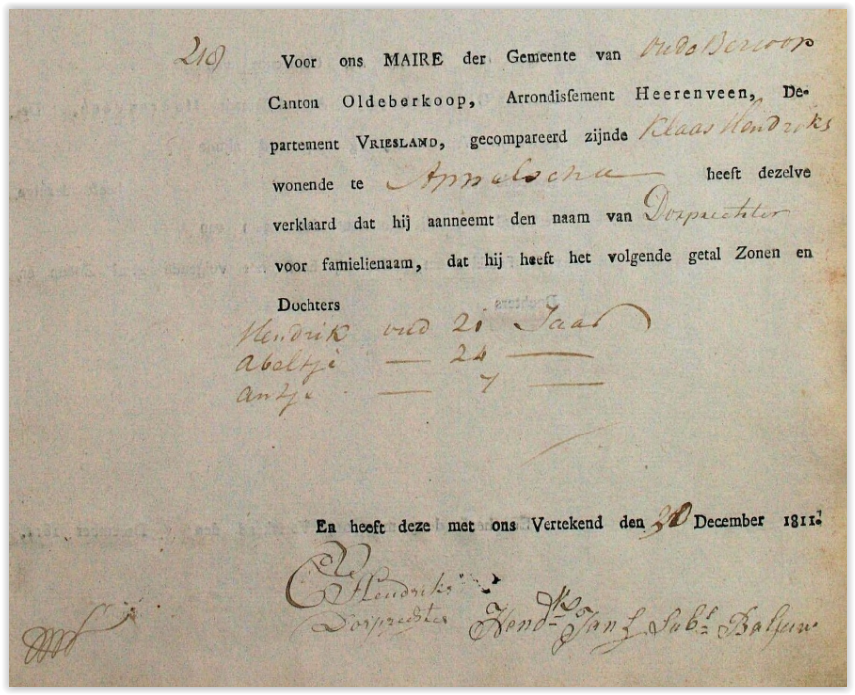 218 Voor ons MAIRE der Gemeente van Oude Bercoop
Canton Oldeberkoop, Arrondissement Heerenveen, De-
partement VRIESLAND, gecompareerd zijnde Klaas Hendriks
wonende te Appelscha heeft dezelve
verklaard dat hij aanneemt den naam van Dorprechter
voor famielienaam, dat hij heeft het volgende getal Zonen en
Dochters
Hendrik oud 21 Jaar
Abeltje — 24 —
Antje — 7 —
En heeft deze met ons Vertekend den December 1811.
Hendriks
Dorprechter
Hendk Jans